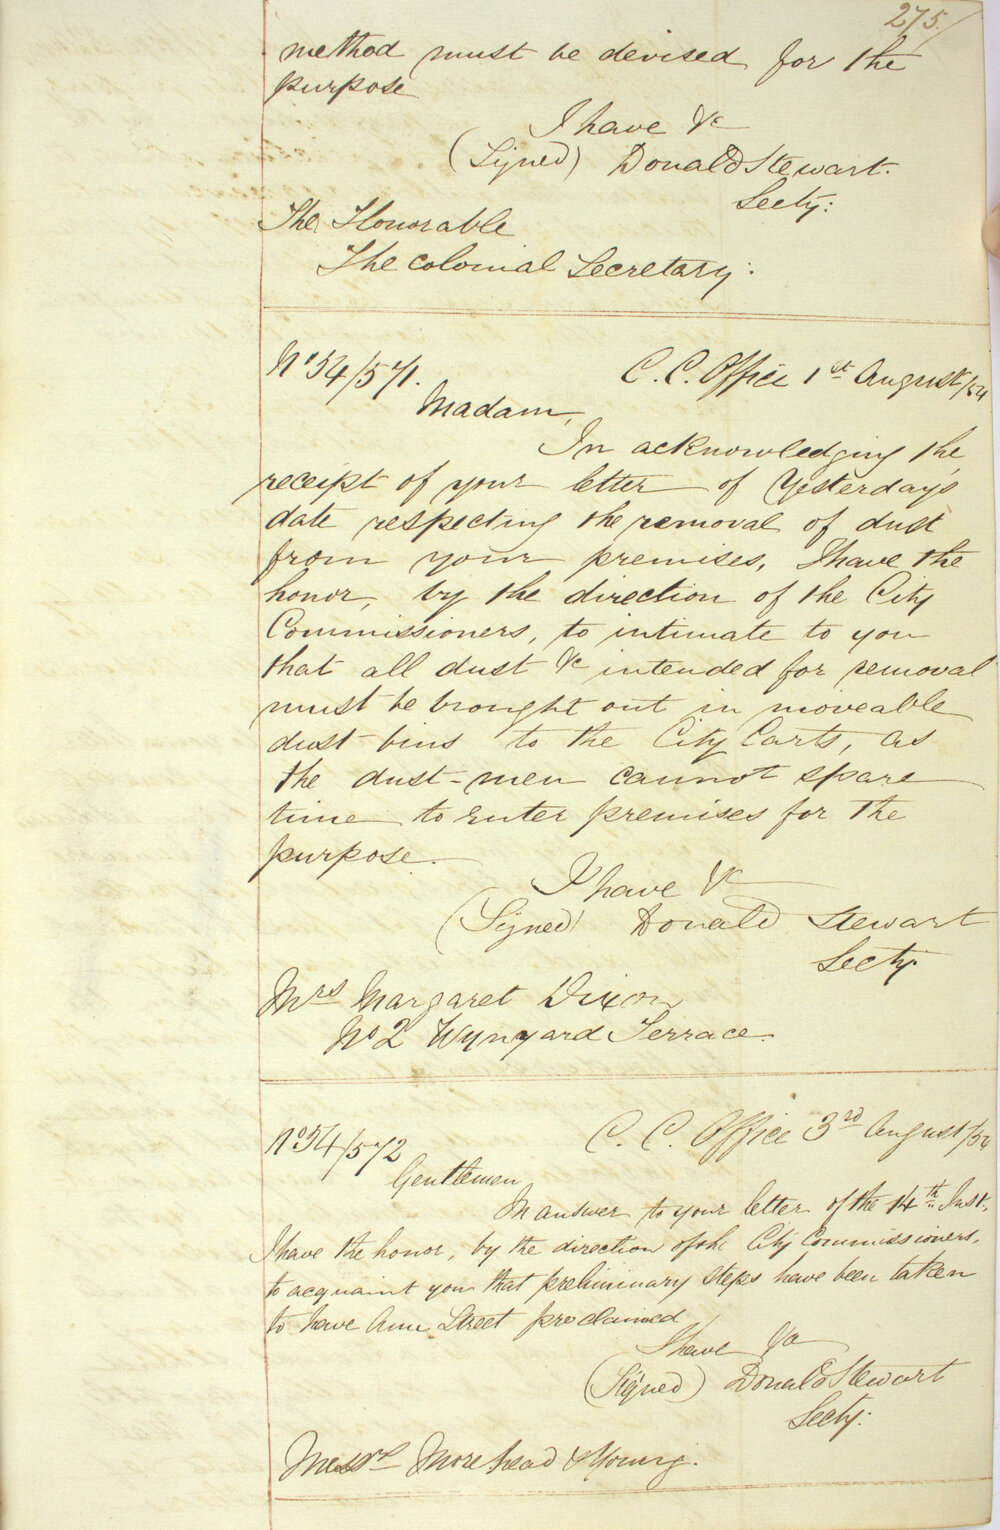 275.
method must be devised for the
purpose
I have &c
(Signed) Donald Stewart.
Secty:
The Honorable
The Colonial Secretary.
No 54/571.
C. C. Office 1st August/54
Madam,
In acknowledging the
receipt of your letter of Yesterday's
date respecting the removal of dust
from your premises, I have the
honor, by the direction of the City
Commissioners, to intimate to you
that all dust &c intended for removal
must be brought out in moveable
dust-bins to the City Carts, as
the dust-men cannot spare
time to enter premises for the
purpose.
I have &c
(Signed) Donald Stewart
Secty.
Mrs Margaret Dixon
No 2 Wynyard Terrace.
No 54/572
C. C. Office 3rd August/54
Gentlemen
In answer to your letter of the 14th Inst.,
I have the honor, by the direction of the City Commissioners,
to acquaint you that preliminary steps have been taken
to have Ann Street proclaimed
I have &c
(Signed) Donald Stewart
Secty:
Messrs Morehead & Young.